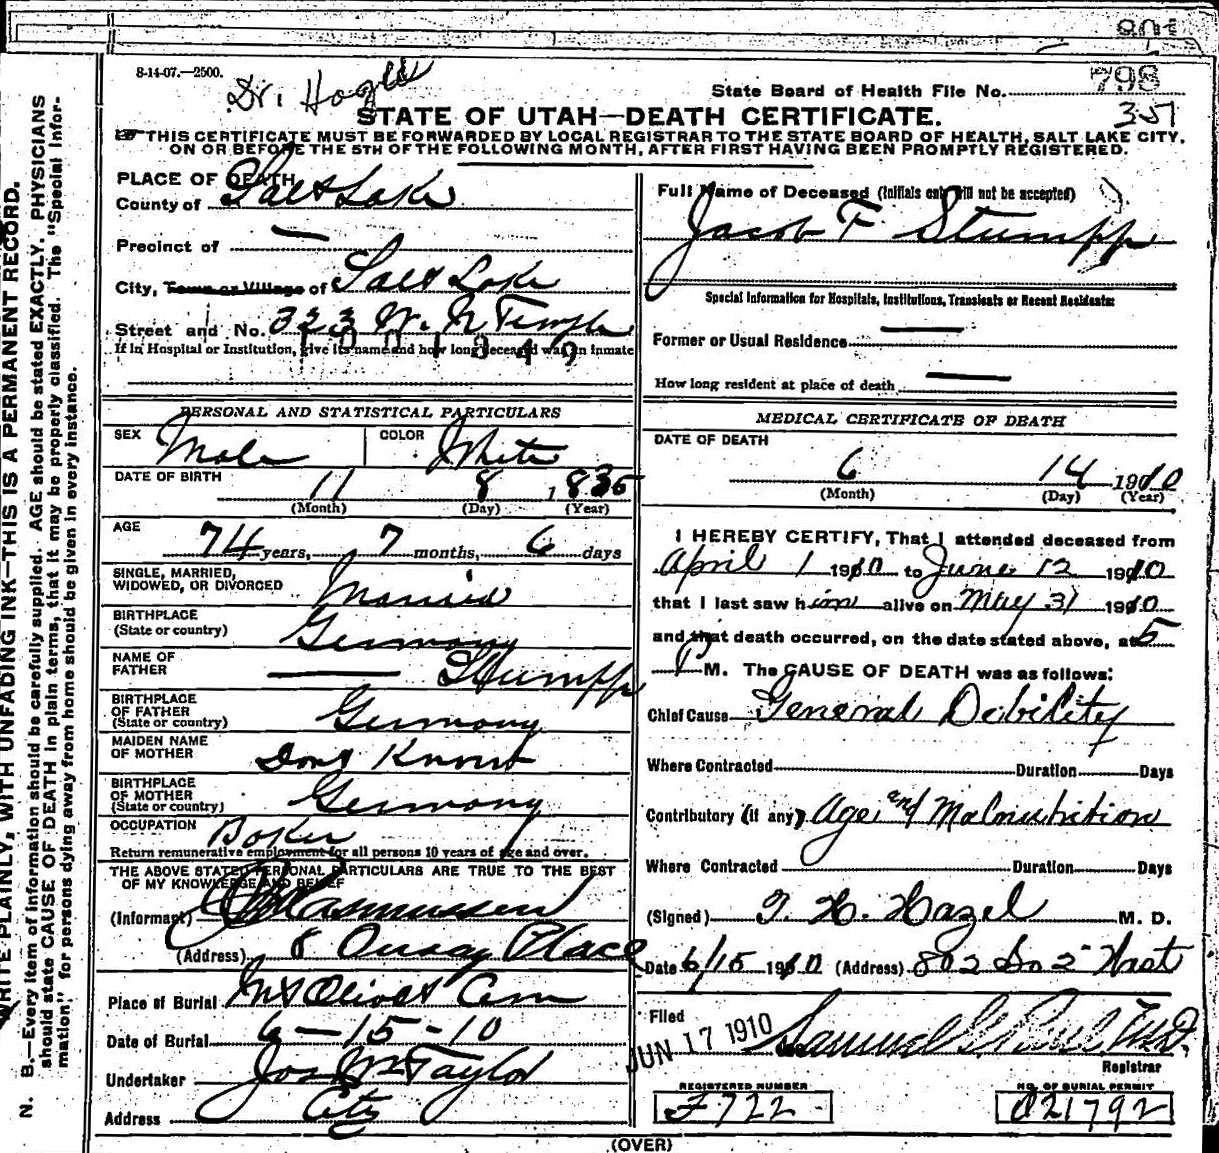 801
8-14-07.—2500.
Dr.
State Board of Health File No. 798
357
STATE OF UTAH—DEATH CERTIFICATE.
THIS CERTIFICATE MUST BE FORWARDED BY LOCAL REGISTRAR TO THE STATE BOARD OF HEALTH, SALT LAKE CITY,
ON OR BEFORE THE 5TH OF THE FOLLOWING MONTH, AFTER FIRST HAVING BEEN PROMPTLY REGISTERED.
WRITE PLAINLY, WITH UNFADING INK—THIS IS A PERMANENT RECORD.
N. B.—Every item of information should be carefully supplied. AGE should be stated EXACTLY. PHYSICIANS
should state CAUSE OF DEATH in plain terms, that it may be properly classified. The "Special Infor-
mation," for persons dying away from home should be given in every instance.
PLACE OF DEATH
County of Salt Lake
Precinct of —
City, Town or Village of Salt Lake
Street and No. 323 W. N Temple
If in Hospital or Institution, give its name and how long deceased was an inmate
PERSONAL AND STATISTICAL PARTICULARS
SEX Male COLOR White
DATE OF BIRTH 11 8 1835
(Month) (Day) (Year)
AGE 74 years, 7 months, 6 days
SINGLE, MARRIED,
WIDOWED, OR DIVORCED Married
BIRTHPLACE
(State or country) Germany
NAME OF
FATHER — Stumpp
BIRTHPLACE
OF FATHER
(State or country) Germany
MAIDEN NAME
OF MOTHER Dont Know
BIRTHPLACE
OF MOTHER
(State or country) Germany
OCCUPATION Baker
Return remunerative employment for all persons 10 years of age and over.
THE ABOVE STATED PERSONAL PARTICULARS ARE TRUE TO THE BEST
OF MY KNOWLEDGE AND BELIEF
(Informant) Rasmussen
(Address) 8 Place
Place of Burial Mt Olivet Cem
Date of Burial 6—15-10
Undertaker Jos Wm Taylor
Address City
Full Name of Deceased (Initials only will not be accepted)
Jacob F Stumpp
Special Information for Hospitals, Institutions, Transients or Recent Residents:
Former or Usual Residence —
How long resident at place of death —
MEDICAL CERTIFICATE OF DEATH
DATE OF DEATH
6 14 1910
(Month) (Day) (Year)
I HEREBY CERTIFY, That I attended deceased from
April 1 1910 to June 12 1910
that I last saw him alive on May 31 1910
and that death occurred, on the date stated above, at 5
P M. The CAUSE OF DEATH was as follows:
Chief Cause General Debility
Where Contracted Duration Days
Contributory (if any) Age and Malnutrition
Where Contracted Duration Days
(Signed) T. H. Hazel M. D.
Date 6/15 1910 (Address) 802 So 2 West
Filed
JUN 17 1910 Samuel G. Paul, M.D.
Registrar
REGISTERED NUMBER
F722
NO. OF BURIAL PERMIT
C21792
(OVER)